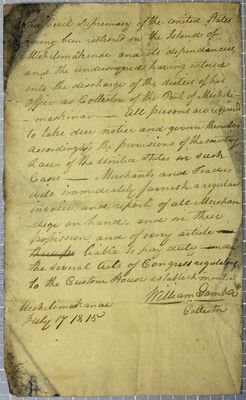 The Civil Supremacy of the United States
having been restored on the Island of
Michilimakinac and its dependancies,
and the undersigned having entered
into the discharge of the duties of his
office as Collector of the Port of Michili
-makinac — All persons are required
to take due notice and govern themselves
accordingly to the provisions of the
Laws of the United States in such
Cases — Merchants and Traders
will immediately furnish a regular
invoice and report of all Merchan
dize on hand and in their
possession and of every article
liable to pay duty under
the several Acts of Congress regulating
to the Custom House establishment
William Gamble
Collector
Michilimakinac
July 17 1815